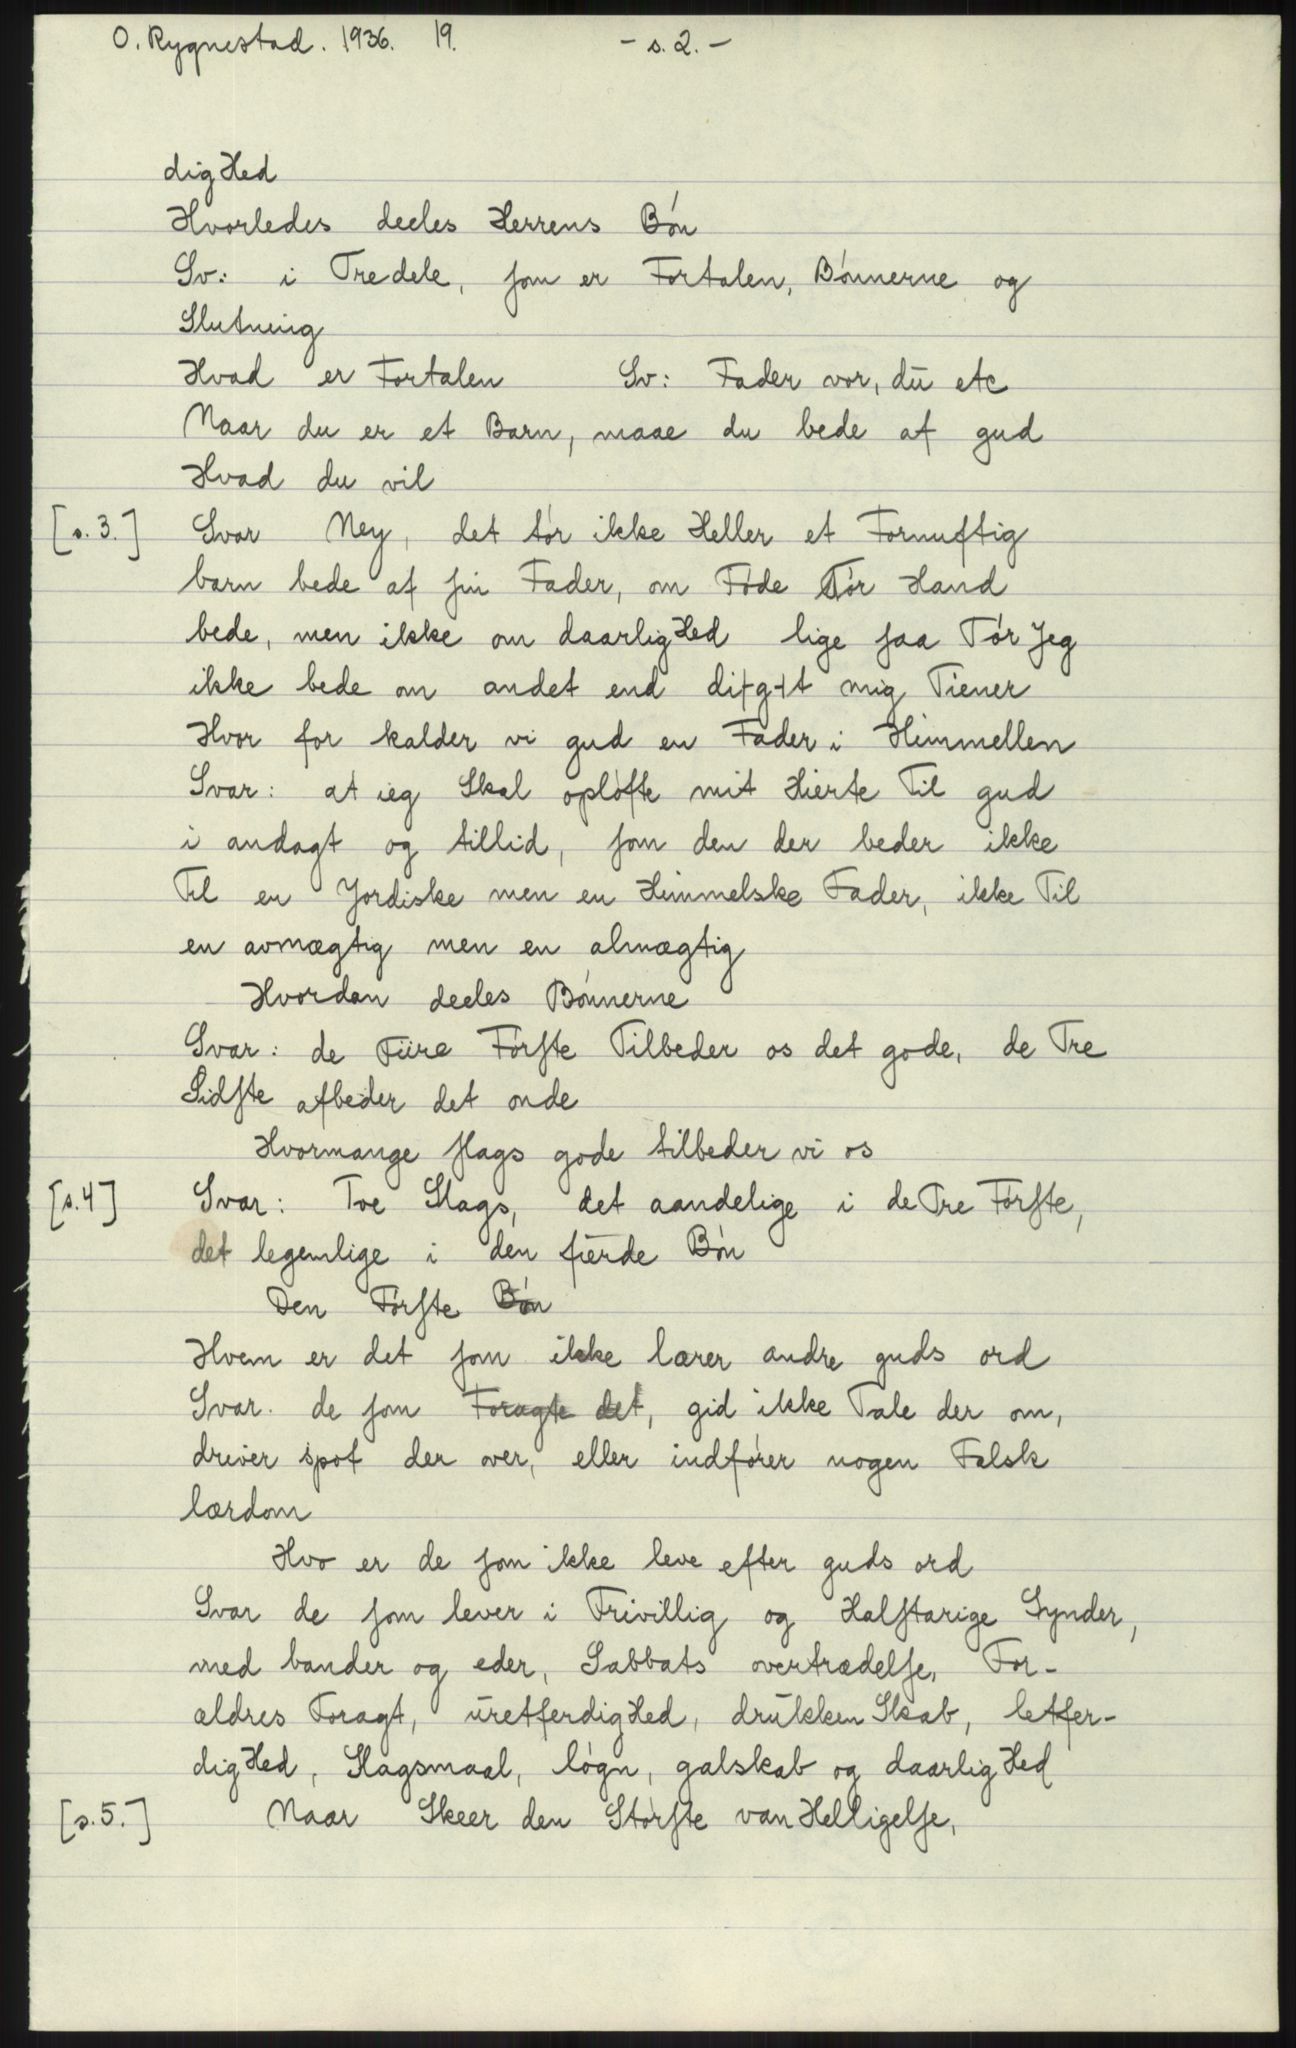 O. Rygnestad. 1936. 19. - s. 2. -
digHed
Hvorledes deeles Herrens Bón
Sv: i Tredele, ſom er Fortalen, Bónnerne og
Slutning
Hvad er Fortalen Sv: Fader vor, dū etc
Naar du er et Barn, maae du bede af gud
Hvad du vil
[s. 3.] Svar Ney, det tór ikke Heller et Fornuftig
barn bede af ſin Fader, om Fóde Tór Hand
bede, men ikke om daarligHed lige ſaa Tór Jeg
ikke bede om andet end mig Tiener
Hvor for kalder vi gud en Fader i Himmellen
Svar: at ieg Skal oplófte mit Hierte Til gud
i andagt og tillid, ſom den der beder ikke
Til en Jordiske men en Himmelske Fader, ikke Til
en avmægtig men en almægtig
Hvordan deeles Bónnerne
Svar: de Fiire Fórſte Tilbeder os det gode, de Tre
Sidſte afbeder det onde
Hvormange ſlags gode tilbeder vi os
[s. 4] Svar: Toe Slags, det aandelige i de Tre Fórſte,
det legemlige i den fierde Bón
Den Fórſte Bón
Hvem er det ſom ikke lærer andre guds ord
Svar. de ſom Foragte det, gid ikke Tale der om,
driver spot der over, eller indfórer nogen Falsk
lærdom
Hvo er de ſom ikke leve efter guds ord
Svar de ſom lever i Frivillig og Halſtarige Synder,
med bander og eder, Sabbats overtrædelſe, For-
ældres Foragt, ūretferdigHed, drūkken Skab, letfer-
digHed, Slagsmaal, lógn, galskab og daarligHed
[s. 5.] Naar Skeer den Stórſte vanHelligelſe,